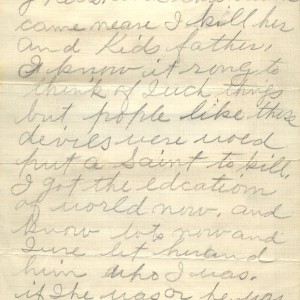 came neare I kill her
and Kids father,
I know it rong to
think of Such things
but pople like those
devils were woed
put a Saint to kill,
I got the edcation
of world now. and
know lots now and
I ure let her and
him who I was.
if She was or he was